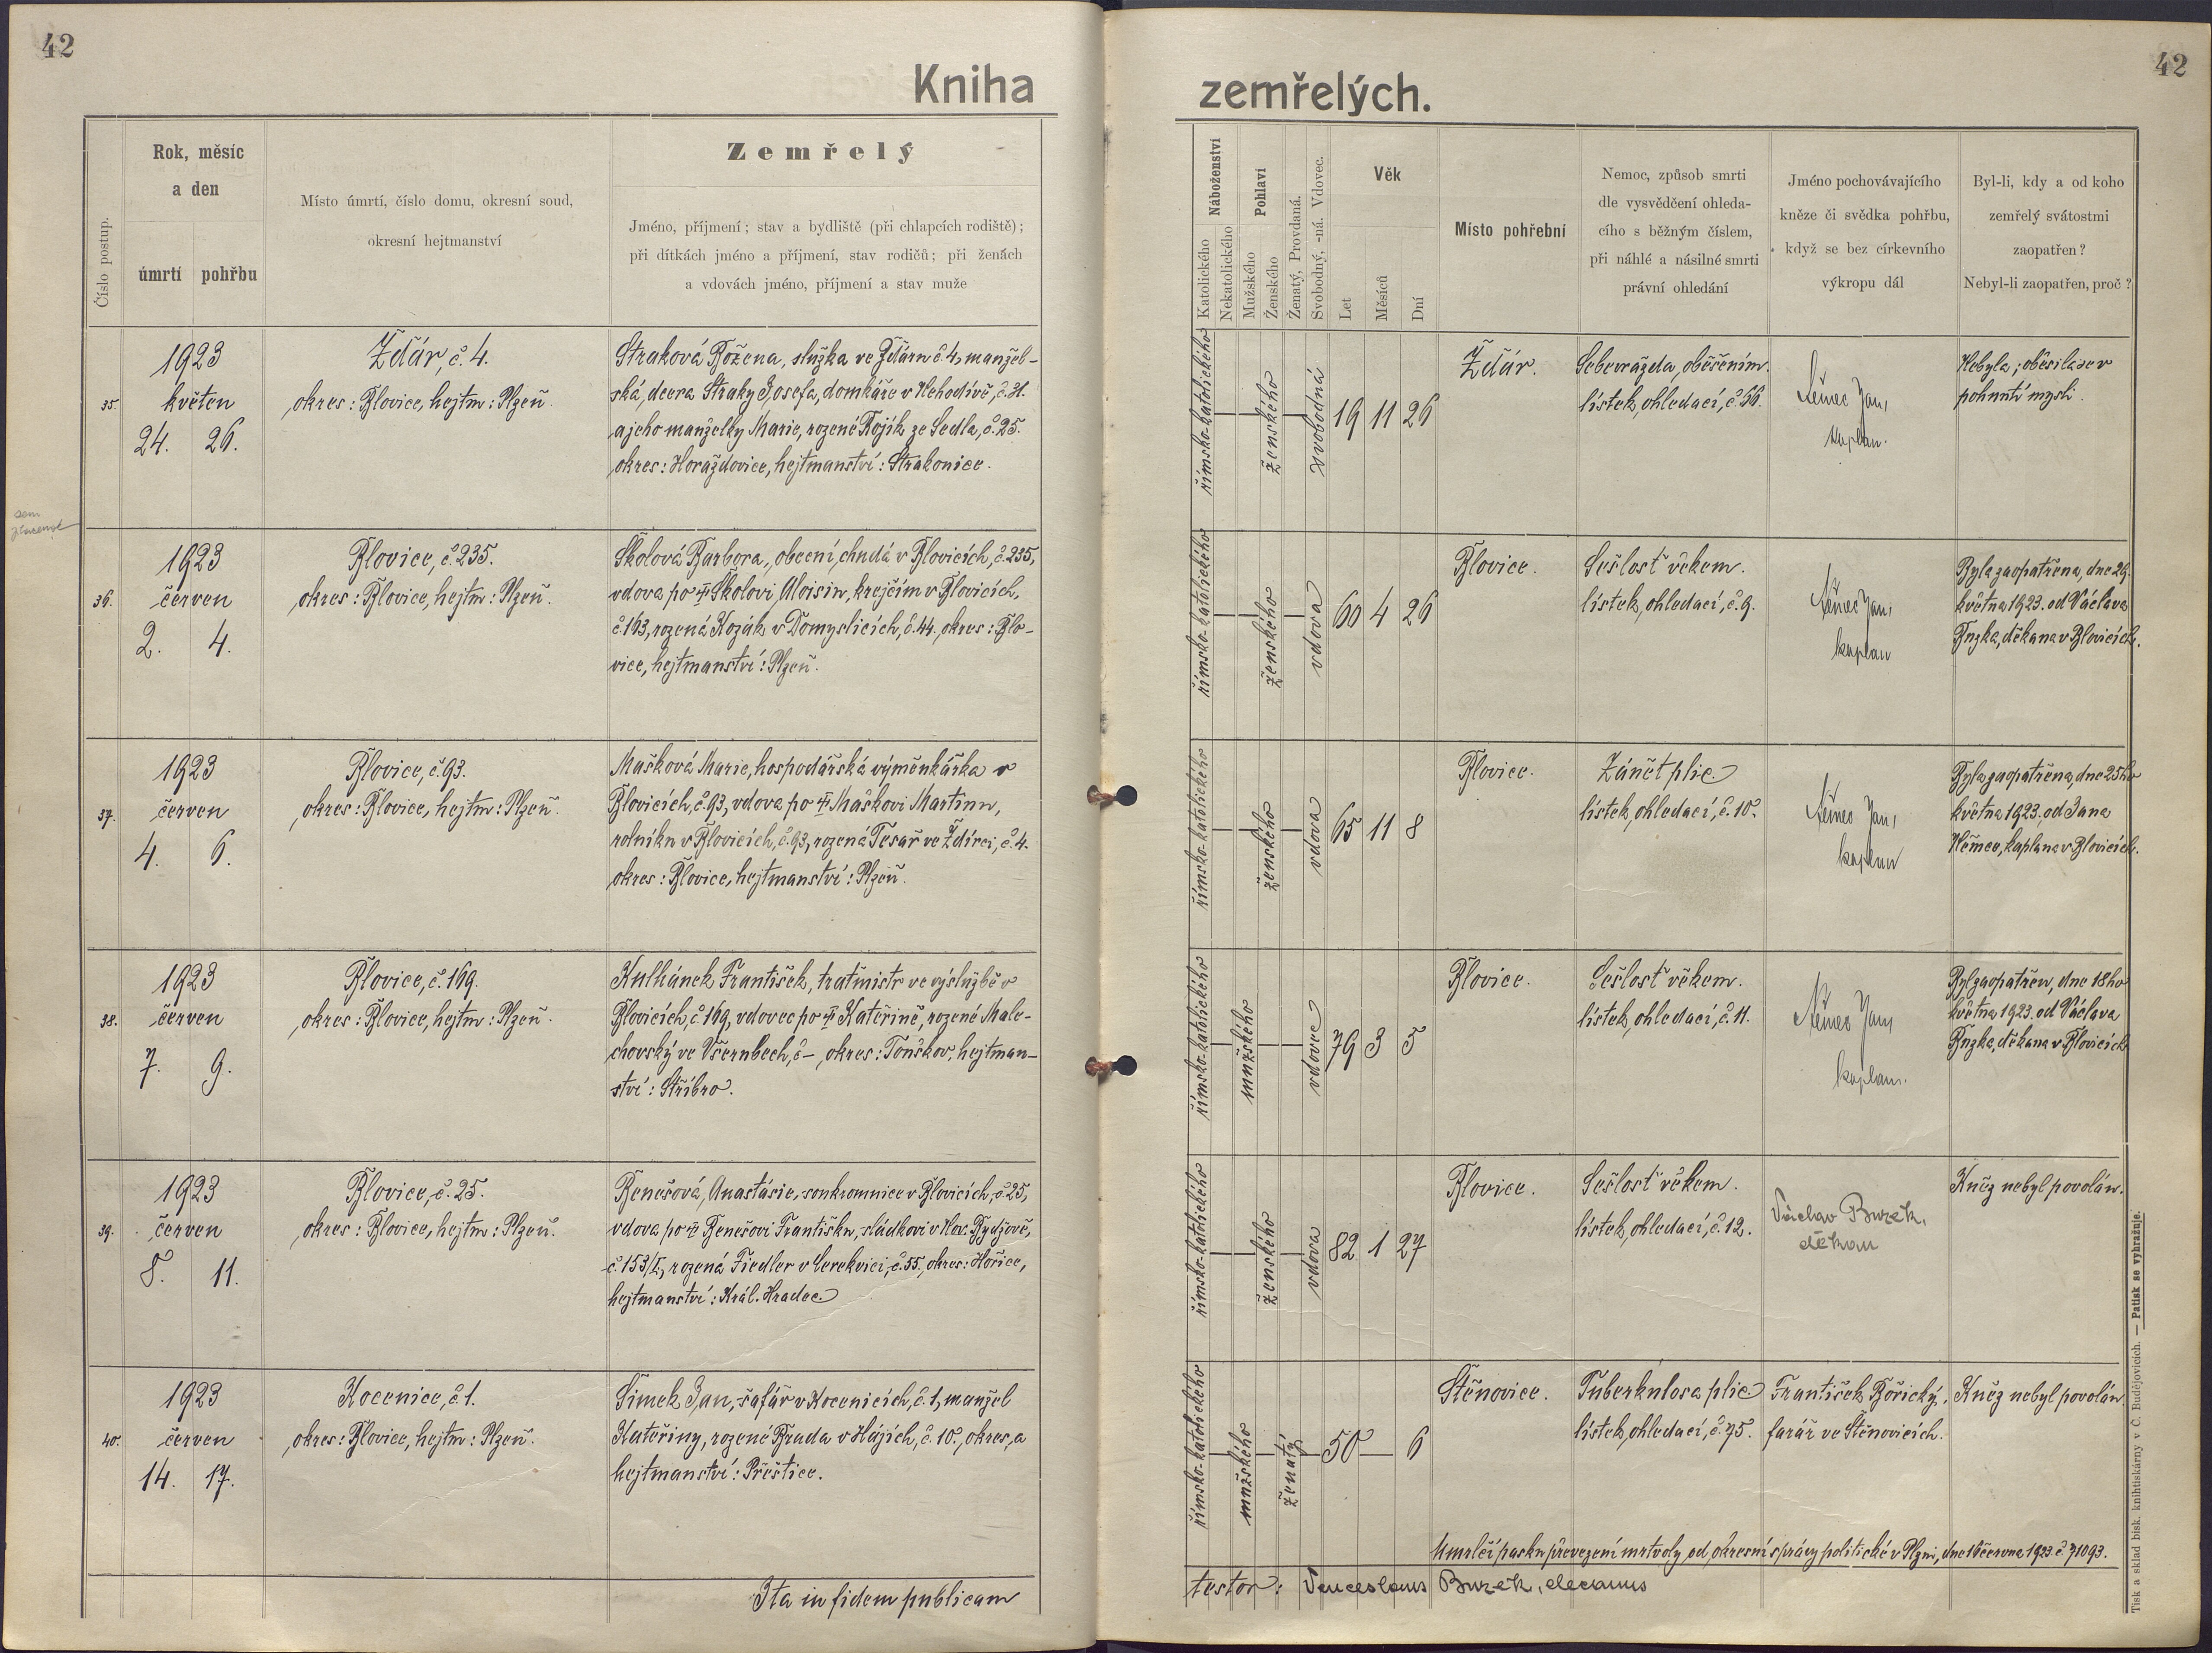 42
42
Kniha
zemřelých.
Číslo postup.
Rok, měsíc
a den
úmrtí
pohřbu
Místo úmrtí, číslo domu, okresní soud,
okresní hejtmanství
Zemřelý
Jméno, příjmení; stav a bydliště (při chlapcích rodiště);
při dítkách jméno a příjmení, stav rodičů; při ženách
a vdovách jméno, příjmení a stav muže
Náboženství
Katolického
Nekatolického
Pohlaví
Mužského
Ženského
Ženatý, Provdaná.
Svobodný, -ná. Vdovec.
Věk
Let
Měsíců
Dní
Místo pohřební
Nemoc, způsob smrti
dle vysvědčení ohleda-
cího s běžným číslem,
při náhlé a násilné smrti
právní ohledání
Jméno pochovávajícího
kněze či svědka pohřbu,
když se bez církevního
výkropu dál
Byl-li, kdy a od koho
zemřelý svátostmi
zaopatřen?
Nebyl-li zaopatřen, proč?
35.
1923
květen
24. 26.
Ždár, č. 4.
okres: Blovice, hejtm: Plzeň.
Straková Božena, služka ve Ždáru č. 4, manžel-
ská, dcera Straky Josefa, domkáře v Nehodívě, č. 31.
a jeho manželky Marie, rozené Rojík ze Sedla, č. 25.
okres: Horažďovice, hejtmanství: Strakonice.
římsko-katolického
ženského
svobodná
19 11 26
Ždár.
Sebevražda oběšením.
lístek ohledací, č. 66.
Němec Jan,
kaplan.
Nebyla; oběsila se v
pohnutí mysli.
sem
36.
1923
červen
2. 4.
Blovice, č. 235.
okres: Blovice, hejtm: Plzeň.
Školová Barbora, obecní chudá v Blovicích, č. 235,
vdova po † Školovi Aloisiu, krejčím v Blovicích,
č. 163, rozená Kozák v Domyslicích, č. 44, okres: Blo-
vice, hejtmanství: Plzeň.
římsko-katolického
ženského
vdova
60 4 26
Blovice.
Sešlost věkem.
lístek ohledací, č. 9.
Němec Jan,
kaplan
Byla zaopatřena, dne 29.
května 1923. od Václava
Buzka, děkana v Blovicích.
37.
1923
červen
4. 6.
Blovice, č. 93.
okres: Blovice, hejtm: Plzeň.
Mašková Marie, hospodářská výměnkářka v
Blovicích, č. 93, vdova po † Maškovi Martinu,
rolníku v Blovicích, č. 93, rozená Tesař ve Ždírci, č. 4.
okres: Blovice, hejtmanství: Plzeň.
římsko-katolického
ženského
vdova
65 11 8
Blovice.
Zánět plic
lístek ohledací, č. 10.
Němec Jan,
kaplan
Byla zaopatřena, dne 25ho
května 1923. od Jana
Němec, kaplana v Blovicích.
38.
1923
červen
7. 9.
Blovice, č. 169.
okres: Blovice, hejtm: Plzeň.
Kulhánek František, traťmistr ve výslužbě v
Blovicích, č. 169, vdovec po † Kateřině, rozené Male-
chovský ve Všerubech, č -, okres: Touškov, hejtman-
ství: Stříbro.
římsko-katolického
mužského
vdovec
79 3 5
Blovice.
Sešlost věkem.
lístek ohledací, č. 11.
Němec Jan,
kaplan.
Byl zaopatřen, dne 18ho
května 1923. od Václava
Buzka, děkana v Blovicích
39.
1923
červen
8. 11.
Blovice, č. 25.
okres: Blovice, hejtm: Plzeň.
Benešová Anastásie, soukromnice v Blovicích, č. 25,
vdova po † Benešovi Františku, sládkovi v Nov. Bydžově,
č. 153/I, rozená Fiedler v Cerekvici, č. 55, okres: Hořice,
hejtmanství: Král. Hradec
římsko-katolického
ženského
vdova
82 1 27
Blovice.
Sešlost věkem.
lístek ohledací, č. 12.
Václav Buzek,
děkan
Kněz nebyl povolán.
40.
1923
červen
14. 17.
Kocenice, č. 1.
okres: Blovice, hejtm: Plzeň.
Šimek Jan, šafář v Kocenicích, č. 1, manžel
Kateřiny, rozené Bruda v Hájích, č. 10., okres, a
hejtmanství: Přeštice.
římsko-katolického
mužského
ženatý
50 — 6
Štěnovice.
Tuberkulosa plic
lístek ohledací, č. 75.
František Bořický,
farář ve Štěnovicích.
Kněz nebyl povolán
Umrlčí pas ku převezení mrtvoly od okresní správy politické v Plzni, dne 16 června 1923. č. 71093.
Ita in fidem publicam
testor: Venceslaus Buzek, decanus
Tisk a sklad bisk. knihtiskárny v Č. Budějovicích. — Patisk se vyhražuje.